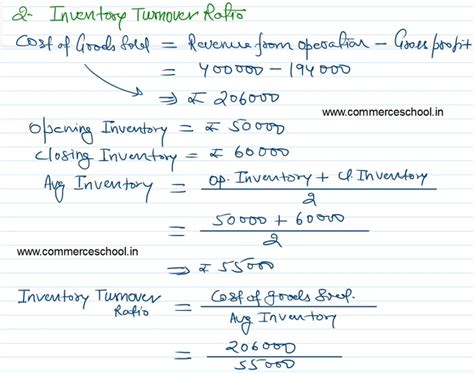 2- Inventory Turnover Ratio
Cost of Goods Sold = Revenue from operation - Gross profit
= 400000 - 194000
⇒ ₹ 206000
www.commerceschool.in
Opening Inventory = ₹ 50000
Closing Inventory = ₹ 60000
Avg Inventory = Op. Inventory + Cl. Inventory
2
= 50000 + 60000
2
www.commerceschool.in
⇒ ₹ 55000
Inventory Turnover Ratio = Cost of goods Sold.
Avg Inventory
= 206000
55000